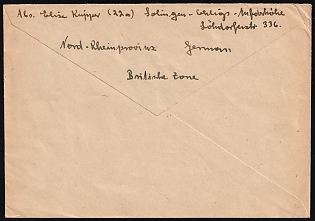 Abs. Elise Küpper (22a) Solingen - Ohligs - Aufderhöhe
Löhdorferstr 336.
Nord-Rheinprovinz German
Britische Zone